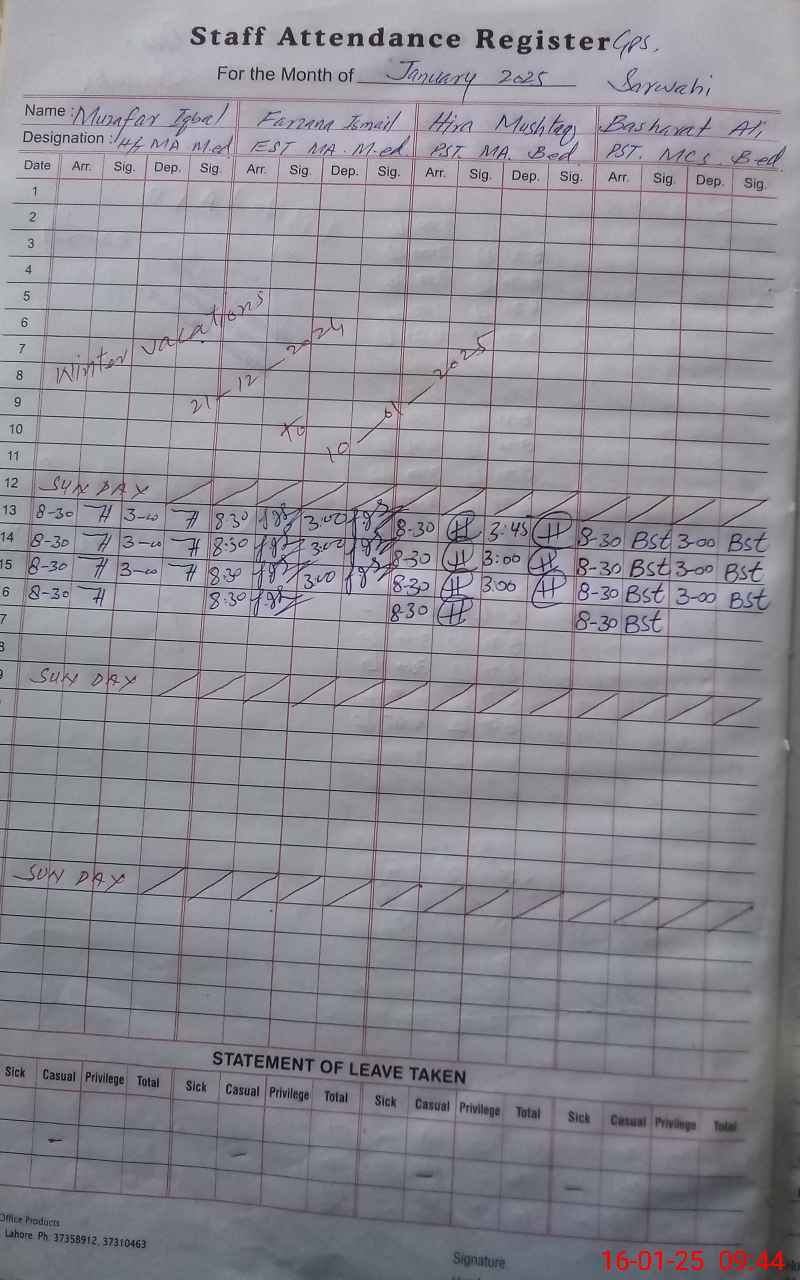 Staff Attendance Register GPS,
For the Month of January 2025 Sarwahi
Name: Muzafar Iqbal Farzana Ismail Hira Mushtaq Basharat Ali,
Designation: Ht MA M.ed EST MA. M.ed PST. MA. Bed PST. MCS. B.ed.
Date Arr. Sig. Dep. Sig. Arr. Sig. Dep. Sig. Arr. Sig. Dep. Sig. Arr. Sig. Dep. Sig.
1
2
3
4
5
6
7
8
9
10
11
Winter vacations
21-12-2024
to
10-01-2025
12 SUNDAY
13 8-30 3-00 8.30 3.00 8-30 H 3:45 H 8-30 Bst 3-00 Bst
14 8-30 3-00 8:30 3.00 8:30 H 3:00 H 8-30 Bst 3-00 Bst
15 8-30 3-00 8.30 3.00 8.30 H 3:00 H 8-30 Bst 3-00 Bst
6 8-30 8.30 8.30 H 8-30 Bst
7
8
9 SUNDAY
SUNDAY
STATEMENT OF LEAVE TAKEN
Sick Casual Privilege Total Sick Casual Privilege Total Sick Casual Privilege Total Sick Casual Privilege Total
- - - -
Office Products
Lahore. Ph. 37358912, 37310463
Signature
16-01-25 09:44